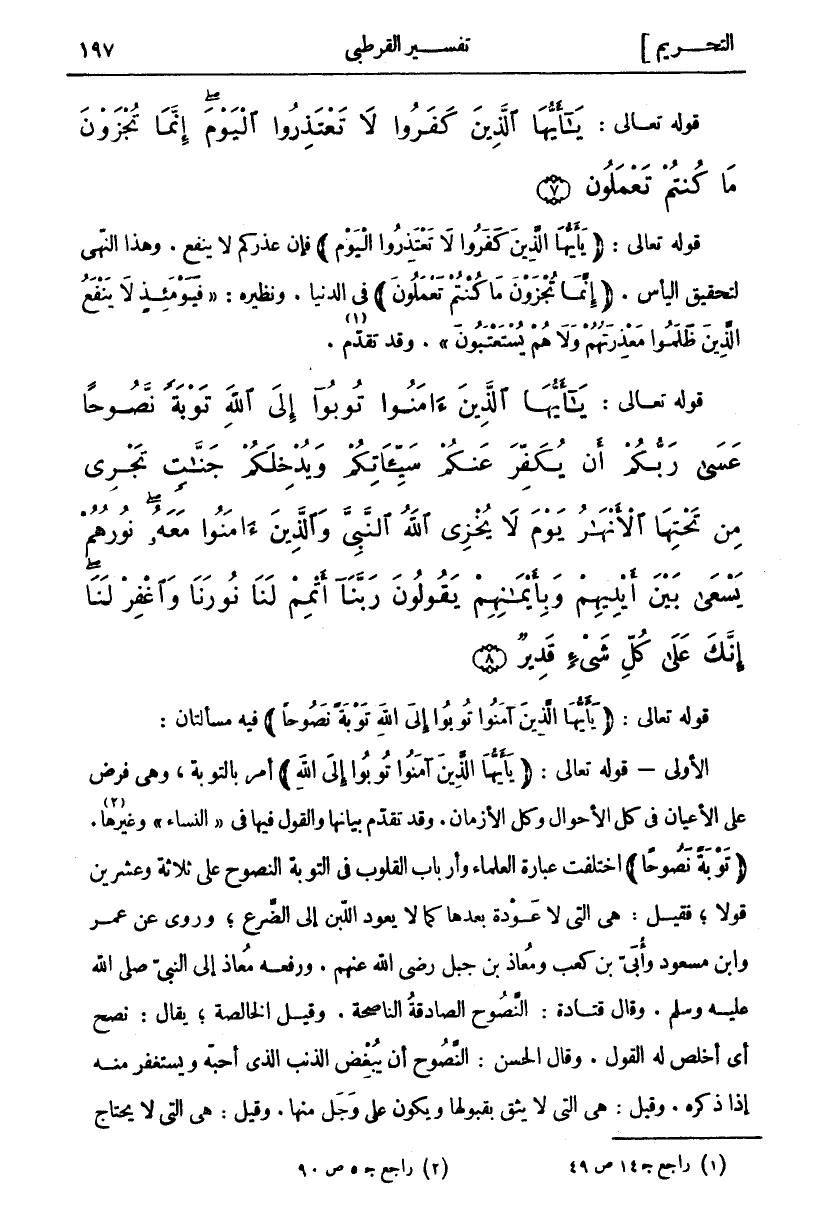 التحـريم] تفسـير القرطبى ١٩٧
قوله تعـالى : يَـٰٓأَيُّهَا ٱلَّذِينَ كَفَرُوا لَا تَعْتَذِرُوا ٱلْيَوْمَ ۖ إِنَّمَا تُجْزَوْنَ
مَا كُنتُمْ تَعْمَلُونَ ⟨٧⟩
قوله تعالى : ﴿ يَأَيُّهَا الَّذِينَ كَفَرُوا لَا تَعْتَذِرُوا الْيَوْمَ ﴾ فإن عذركم لا ينفع . وهذا النّهى
لتحقيق اليأس . ﴿ إِنَّمَا تُجْزَوْنَ مَا كُنْتُمْ تَعْمَلُونَ ﴾ فى الدنيا . ونظيره : « فَيَوْمَئِذٍ لَا يَنْفَعُ
الَّذِينَ ظَلَمُوا مَعْذِرَتُهُمْ وَلَا هُمْ يُسْتَعْتَبُونَ » (١) . وقد تقدّم .
قوله تعـالى : يَـٰٓأَيُّهَا ٱلَّذِينَ ءَامَنُوا تُوبُوٓا إِلَى ٱللَّهِ تَوْبَةً نَّصُوحًا
عَسَىٰ رَبُّكُمْ أَن يُكَفِّرَ عَنكُمْ سَيِّـَٔاتِكُمْ وَيُدْخِلَكُمْ جَنَّـٰتٍ تَجْرِى
مِن تَحْتِهَا ٱلْأَنْهَـٰرُ يَوْمَ لَا يُخْزِى ٱللَّهُ ٱلنَّبِىَّ وَٱلَّذِينَ ءَامَنُوا مَعَهُۥ ۖ نُورُهُمْ
يَسْعَىٰ بَيْنَ أَيْدِيهِمْ وَبِأَيْمَـٰنِهِمْ يَقُولُونَ رَبَّنَآ أَتْمِمْ لَنَا نُورَنَا وَٱغْفِرْ لَنَآ ۖ
إِنَّكَ عَلَىٰ كُلِّ شَىْءٍ قَدِيرٌ ⟨٨⟩
قوله تعالى : ﴿ يَأَيُّهَا الَّذِينَ آمَنُوا تُوبُوا إِلَى اللهِ تَوْبَةً نَصُوحاً ﴾ فيه مسألتان :
الأولى — قوله تعالى : ﴿ يَأَيُّهَا الَّذِينَ آمَنُوا تُوبُوا إِلَى اللهِ ﴾ أمر بالتوبة ، وهى فرض
على الأعيان فى كل الأحوال وكل الأزمان . وقد تقدّم بيانها والقول فيها فى « النساء » وغيرها (٢) .
﴿ تَوْبَةً نَصُوحًا ﴾ اختلفت عبارة العلماء وأرباب القلوب فى التوبة النصوح على ثلاثة وعشرين
قولا ؛ فقيـل : هى التى لا عَـوْدة بعدها كما لا يعود اللّبن إلى الضَّرع ؛ وروى عن عمـر
وابن مسعود وأُبَىّ بن كعب ومُعاذ بن جبل رضى الله عنهم . ورفعـه مُعاذ إلى النبىّ صلى الله
عليـه وسلم . وقال قتـادة : النَّصُوح الصادقةُ الناصحة . وقيـل الخالصة ؛ يقال : نصح
أى أخلص له القول . وقال الحسن : النَّصُوح أن يُبْغِض الذنب الذى أحبّه ويستغفر منـه
إذا ذكره . وقيل : هى التى لا يثق بقبولها ويكون على وَجَل منها . وقيل : هى التى لا يحتاج
(١) راجع جـ ١٤ ص ٤٩ (٢) راجع جـ ٥ ص ٩٠